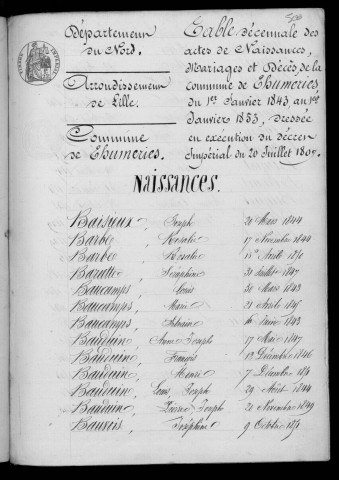 Département
du Nord.
Arrondissement
de Lille.
Commune
de Thumeries.
Table décennale des
actes de Naissances,
Mariages et Décès, de la
commune de Thumeries,
du 1er Janvier 1843, au 1er
Janvier 1853, dressée
en exécution du décret
Impérial du 20 Juillet 1807.
NAISSANCES.
Baisieux, Joseph 20 Mars 1844
Barbe, Rosalie 17 Novembre 1844
Barbe, Rosalie Avril
Séraphine 31 Juillet 1847
Baucamps, Louis 30 Mars 1843
Baucamps, Marie 21 Avril
Baucamps, 16 1843
Bauduin, Joseph 17 Mai 1847
Bauduin, François 12 Décembre 1846
Bauduin, Henri 7 Décembre
Bauduin, Louis Joseph 29 Août 1844
Bauduin, Pierre Joseph 21 Novembre 1849
Bauvois, Joséphine 9 Octobre